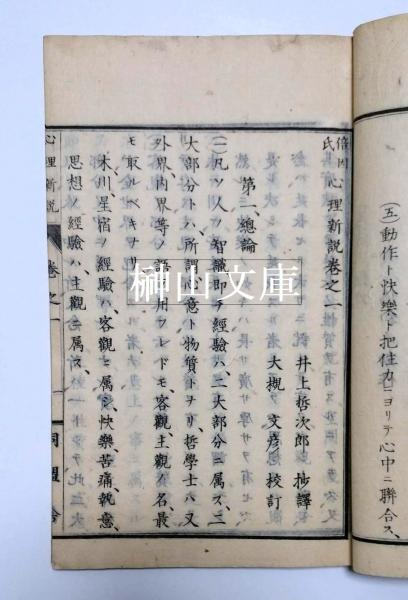 (五)動作ト快樂ト把住力ニヨリテ心中ニ聯合ス、
倍因氏 心理新説卷之一
井上哲次郎 抄譯
大槻文彦 校訂
第一、總論
(一)凡ソ人ノ智識即チ經驗ハ、二大部分ニ屬ス、二
大部分トハ、所謂心意ト物質トナリ、哲學士ハ又
外界、内界等ノ語ヲ用フレドモ、客觀、主觀ノ名、最
モ取ルベキナリ、
木川星宿ノ經驗ハ、客觀ニ屬シ、快樂、苦痛、執意、
思想ノ經驗ハ、主觀ニ屬ス、
心理新説 卷之一 一 同盟舎
榊山文庫